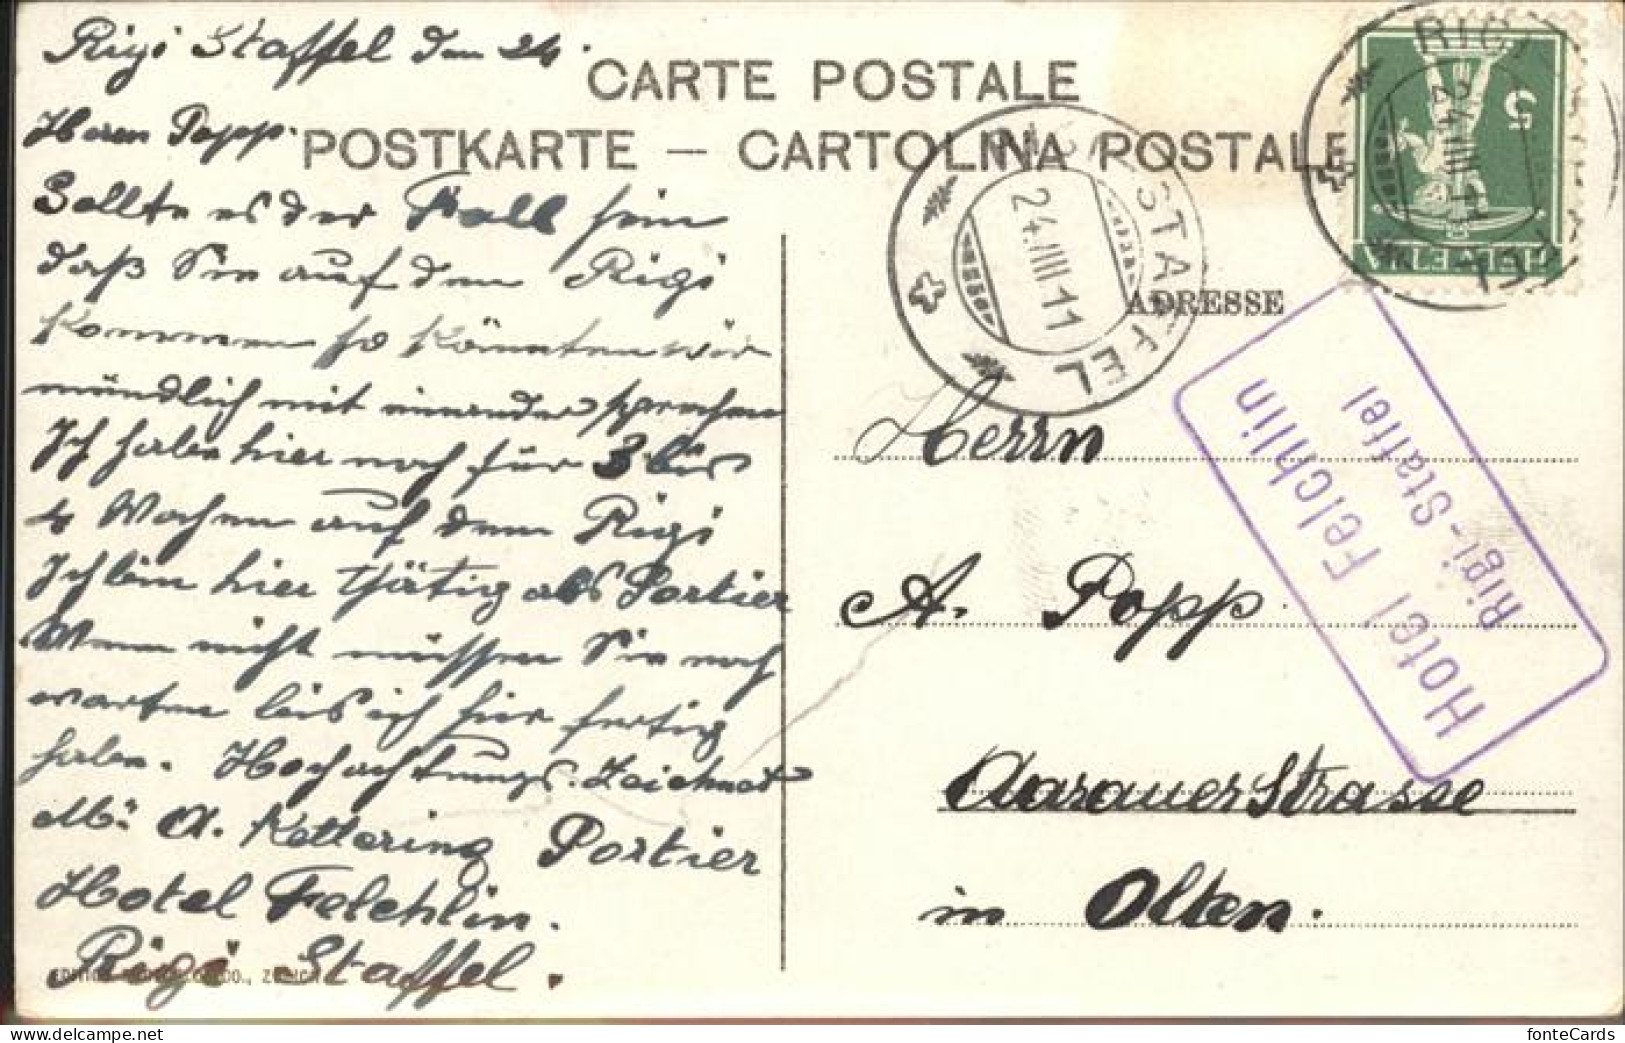 Rigi Staffel den 24.
Herrn Popp.
Sollte es der Fall sein
daß Sie auf den Rigi
kommen so könnten wir
mündlich mit einander sprechen
Ich habe hier noch für 3 bis
4 Wochen auf dem Rigi
Ich bin hier thätig als Portier
Wenn nicht müssen Sie noch
warten bis ich hier fertig
habe. Hochachtungs. Zeichnet
A. Kettering Portier
Hotel Felchlin.
Rigi Staffel.
CARTE POSTALE
POSTKARTE — CARTOLINA POSTALE
ADRESSE
Herrn
A. Popp
Aarauer Strasse
in Olten.
RIGI STAFFEL
24.IIII.11
RIGI
24.IIII.11
5
HELVETIA
Hotel Felchlin
Rigi-Staffel
fonteCards